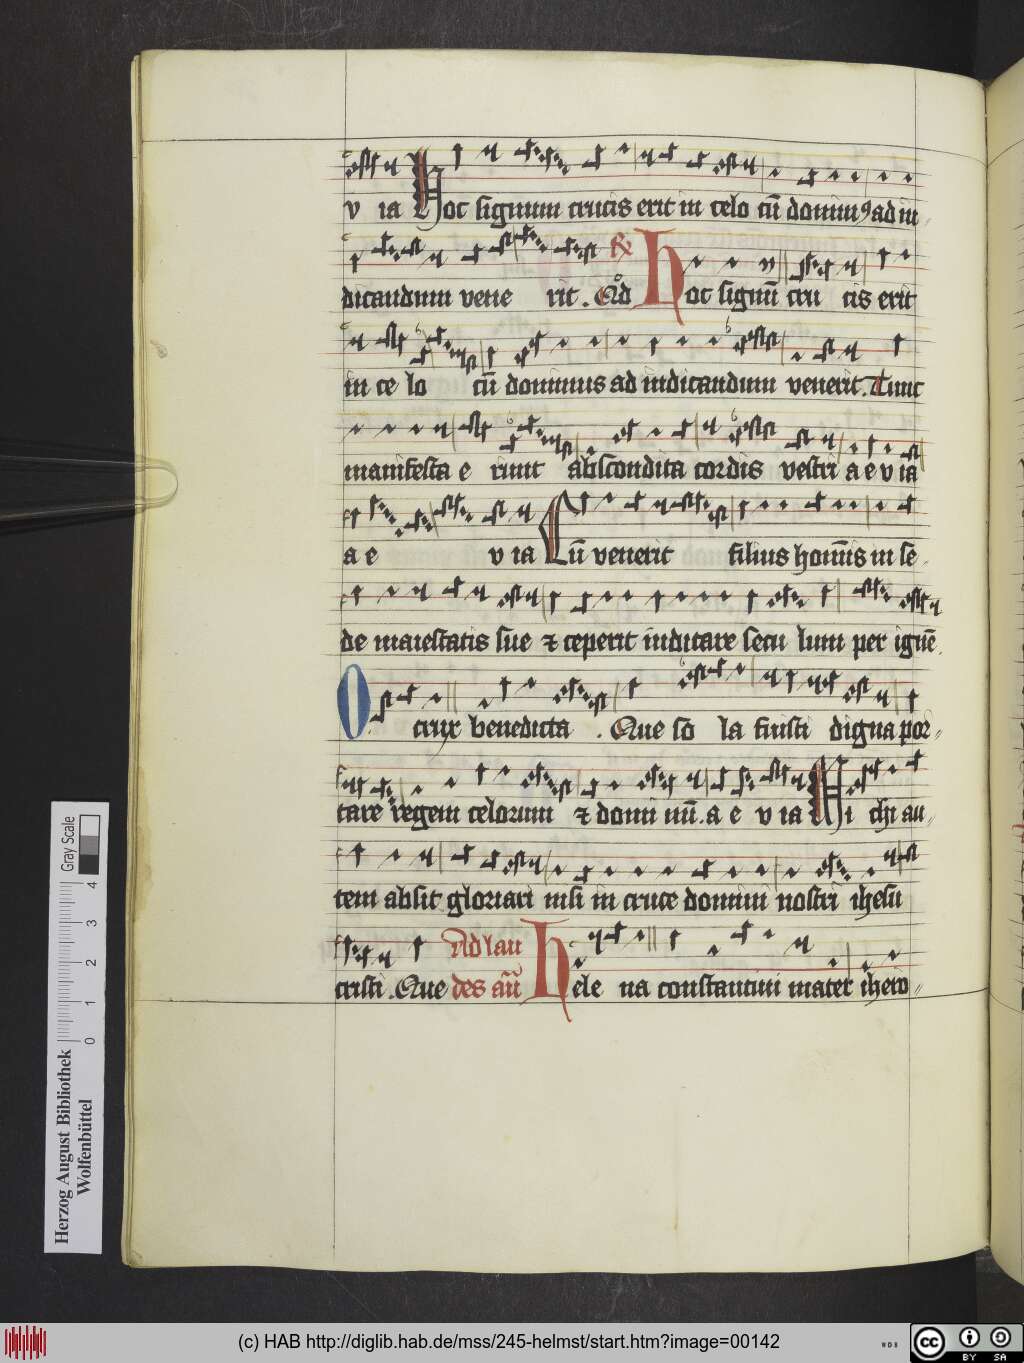 v ia Hoc signum crucis erit in celo cū dominꝰ ad iu
dicandum vene rit. Qͦd ℟ Hoc signū cru cis erit
in ce lo cū dominus ad iudicandum venerit. Tunc
manifesta e runt abscondita cordis vestri a e v ia
a e v ia Cū venerit filius homīs in se
de maiestatis sue ⁊ ceperit iudicare secu lum per ignē
O crux benedicta . Que so la fuisti digna por
tare regem celorum ⁊ domi nū. a e v ia Mi chi au
tem absit gloriari nisi in cruce domini nostri ihesu
cristi. Que Ad lau des añ Hele na constantini mater ihero
Herzog August Bibliothek
Wolfenbüttel
0 1 2 3 4
Gray Scale
(c) HAB http://diglib.hab.de/mss/245-helmst/start.htm?image=00142
WDB
cc BY SA